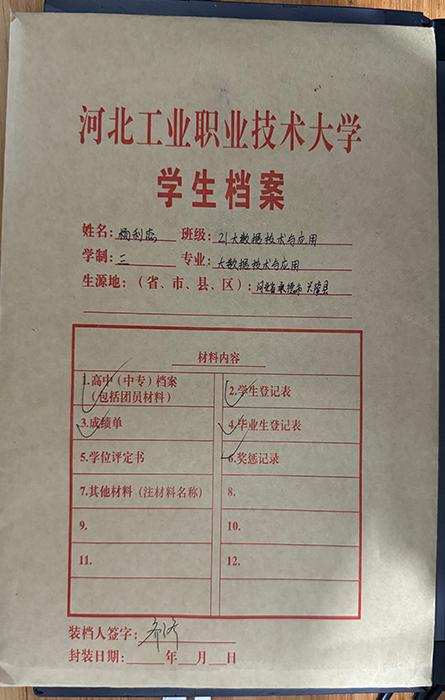 河北工业职业技术大学
学生档案
姓名：杨利杰 班级：21大数据技术与应用
学制：三 专业：大数据技术与应用
生源地：（省、市、县、区）：河北省承德市兴隆县
材料内容
1.高中（中专）档案 2.学生登记表
（包括团员材料）
3.成绩单 4.毕业生登记表
5.学位评定书 6.奖惩记录
7.其他材料（注材料名称） 8.
9. 10.
11. 12.
装档人签字：
封装日期：年 月 日